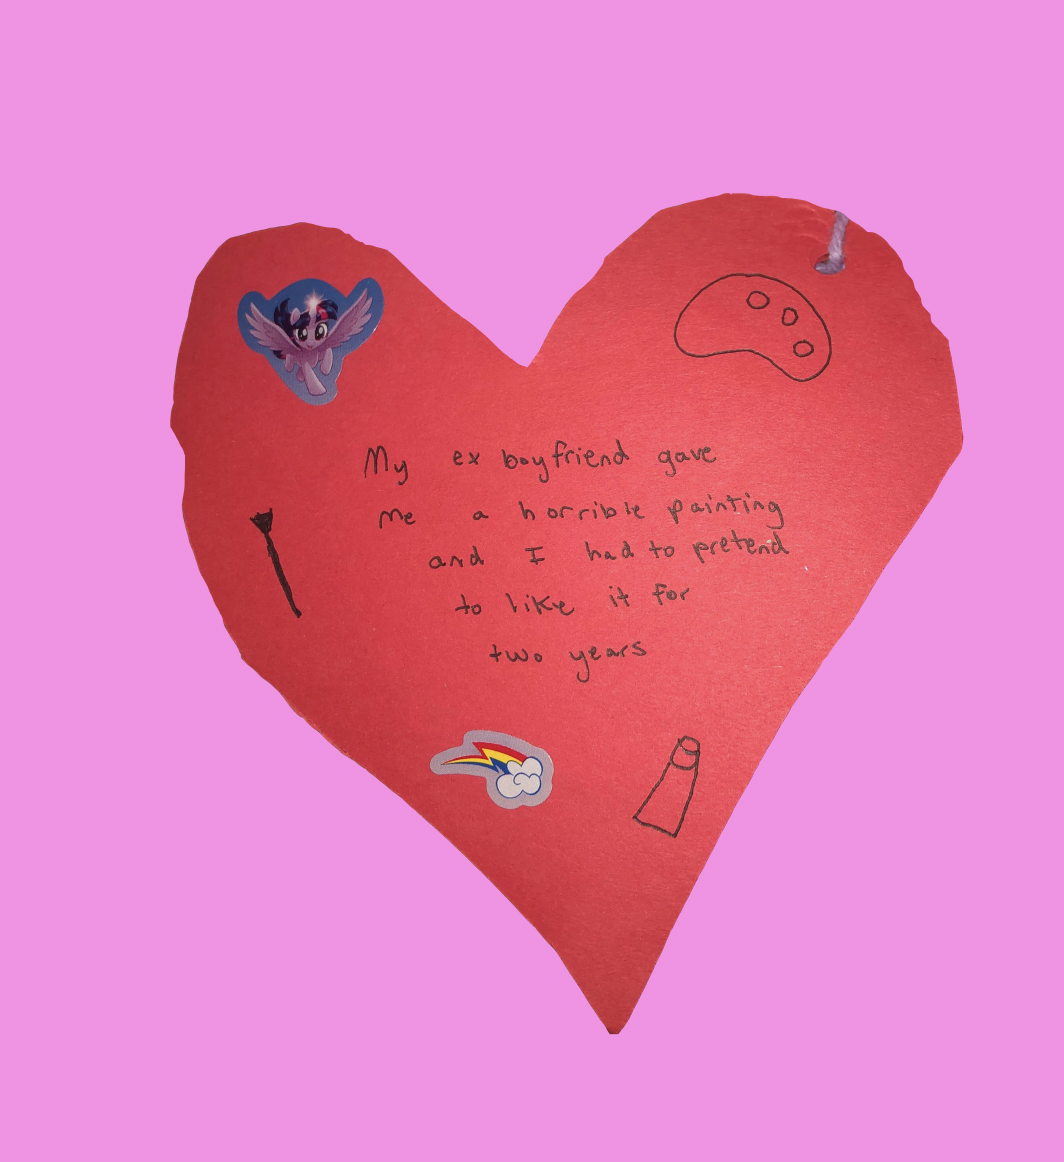 My ex boyfriend gave
me a horrible painting
and I had to pretend
to like it for
two years